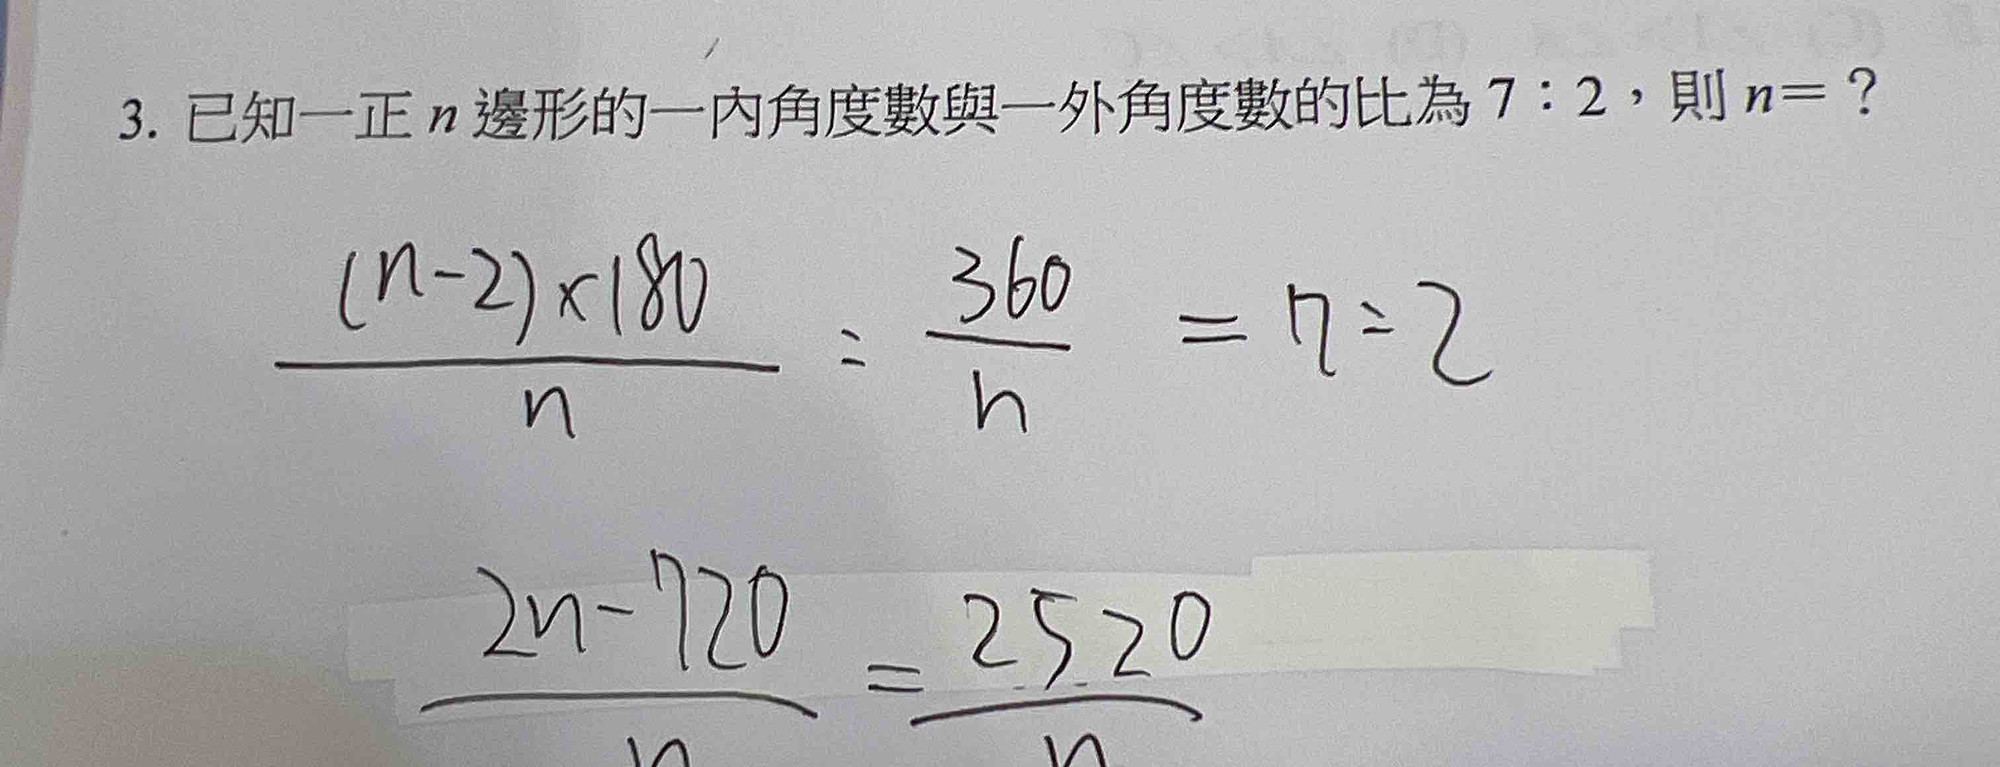 3. 已知一正 n 邊形的一內角度數與一外角度數的比為 7：2，則 n＝？
(n-2)×180 / n : 360 / n = 7:2
2n-720 / n = 2520 / n